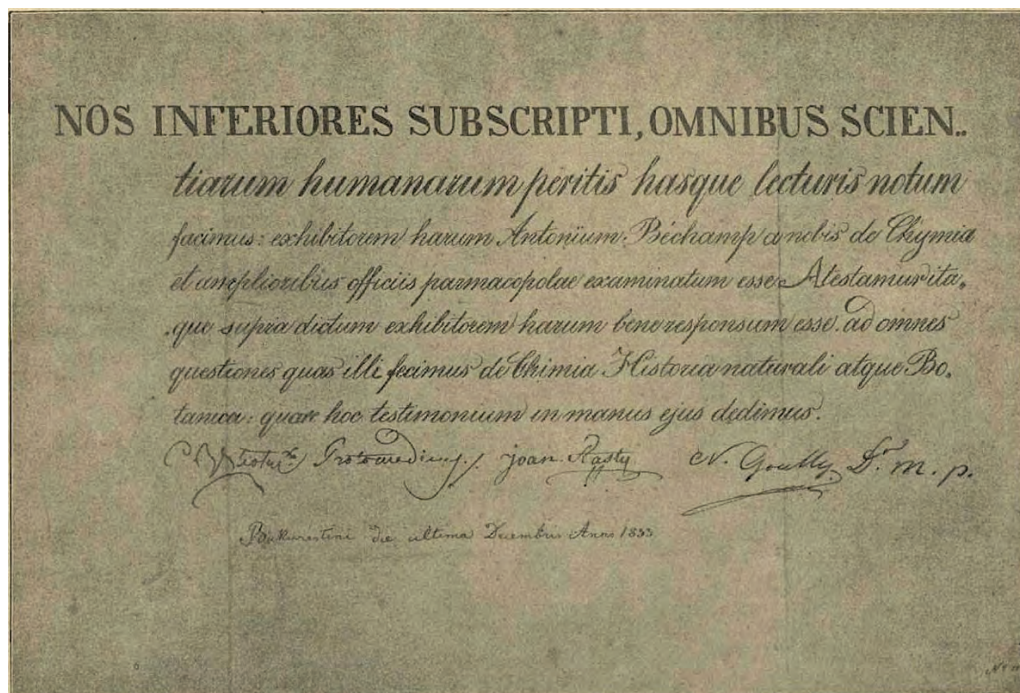 NOS INFERIORES SUBSCRIPTI, OMNIBUS SCIEN..
tiarum humanarum peritis hasque lecturis notum
facimus: exhibitorem harum Antonium Béchamp a nobis de Chymia
et amplioribus officiis parmacopolae examinatum esse Atestamur ita,
que supra dictum exhibitorem harum bene responsum esse. ad omnes
questiones quas illi fecimus de Chimia Historia naturali atque Bo,
tanica: quare hoc testimonium in manus ejus dedimus.
Protomedicus joan. Rasty N. Goully Dr. m. p.
Bukurestini die ultima Decembris Anno 1833